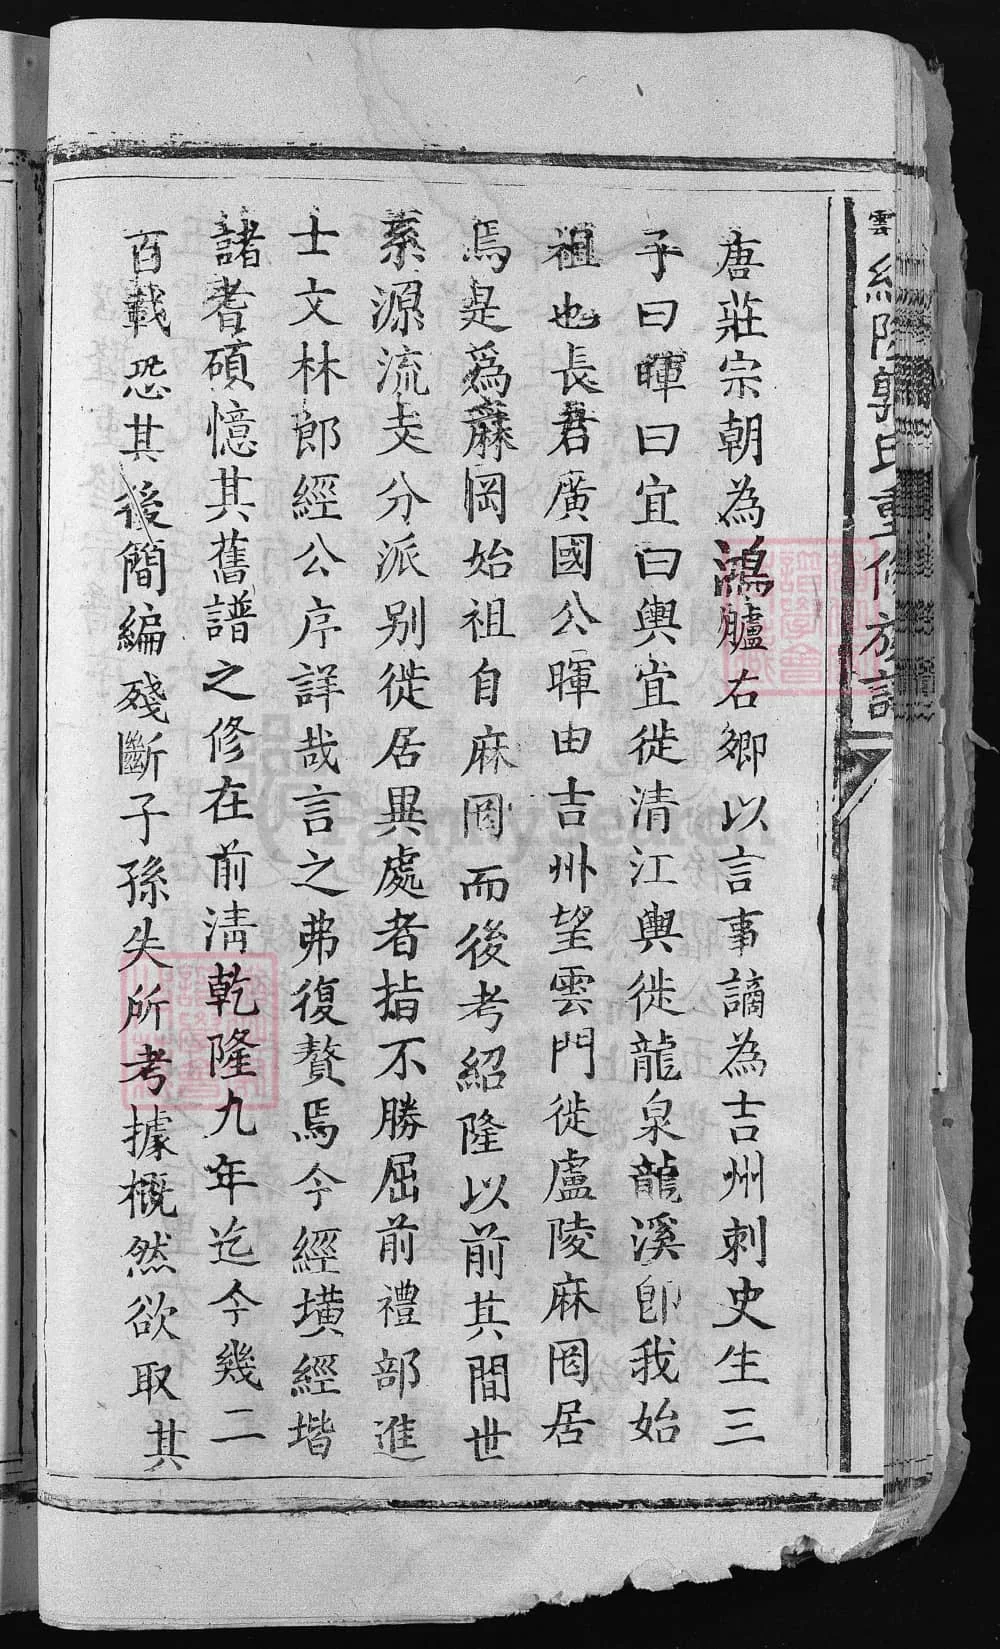 雲 紹隆郭氏重修族譜
唐莊宗朝為鴻臚右卿以言事謫為吉州刺史生三
子曰暉曰宜曰輿宜徙清江輿徙龍泉龍溪卽我始
祖也長君廣國公暉由吉州望雲門徙盧陵麻岡居
焉是爲蔴岡始祖自麻岡而後考紹隆以前其間世
系源流支分派别徙居異處者指不勝屈前禮部進
士文林郎經公序詳哉言之弗復贅焉今經墴經堦
諸耆碩憶其舊譜之修在前清乾隆九年迄今幾二
百載恐其後簡編殘斷子孫失所考據概然欲取其
FamilySearch